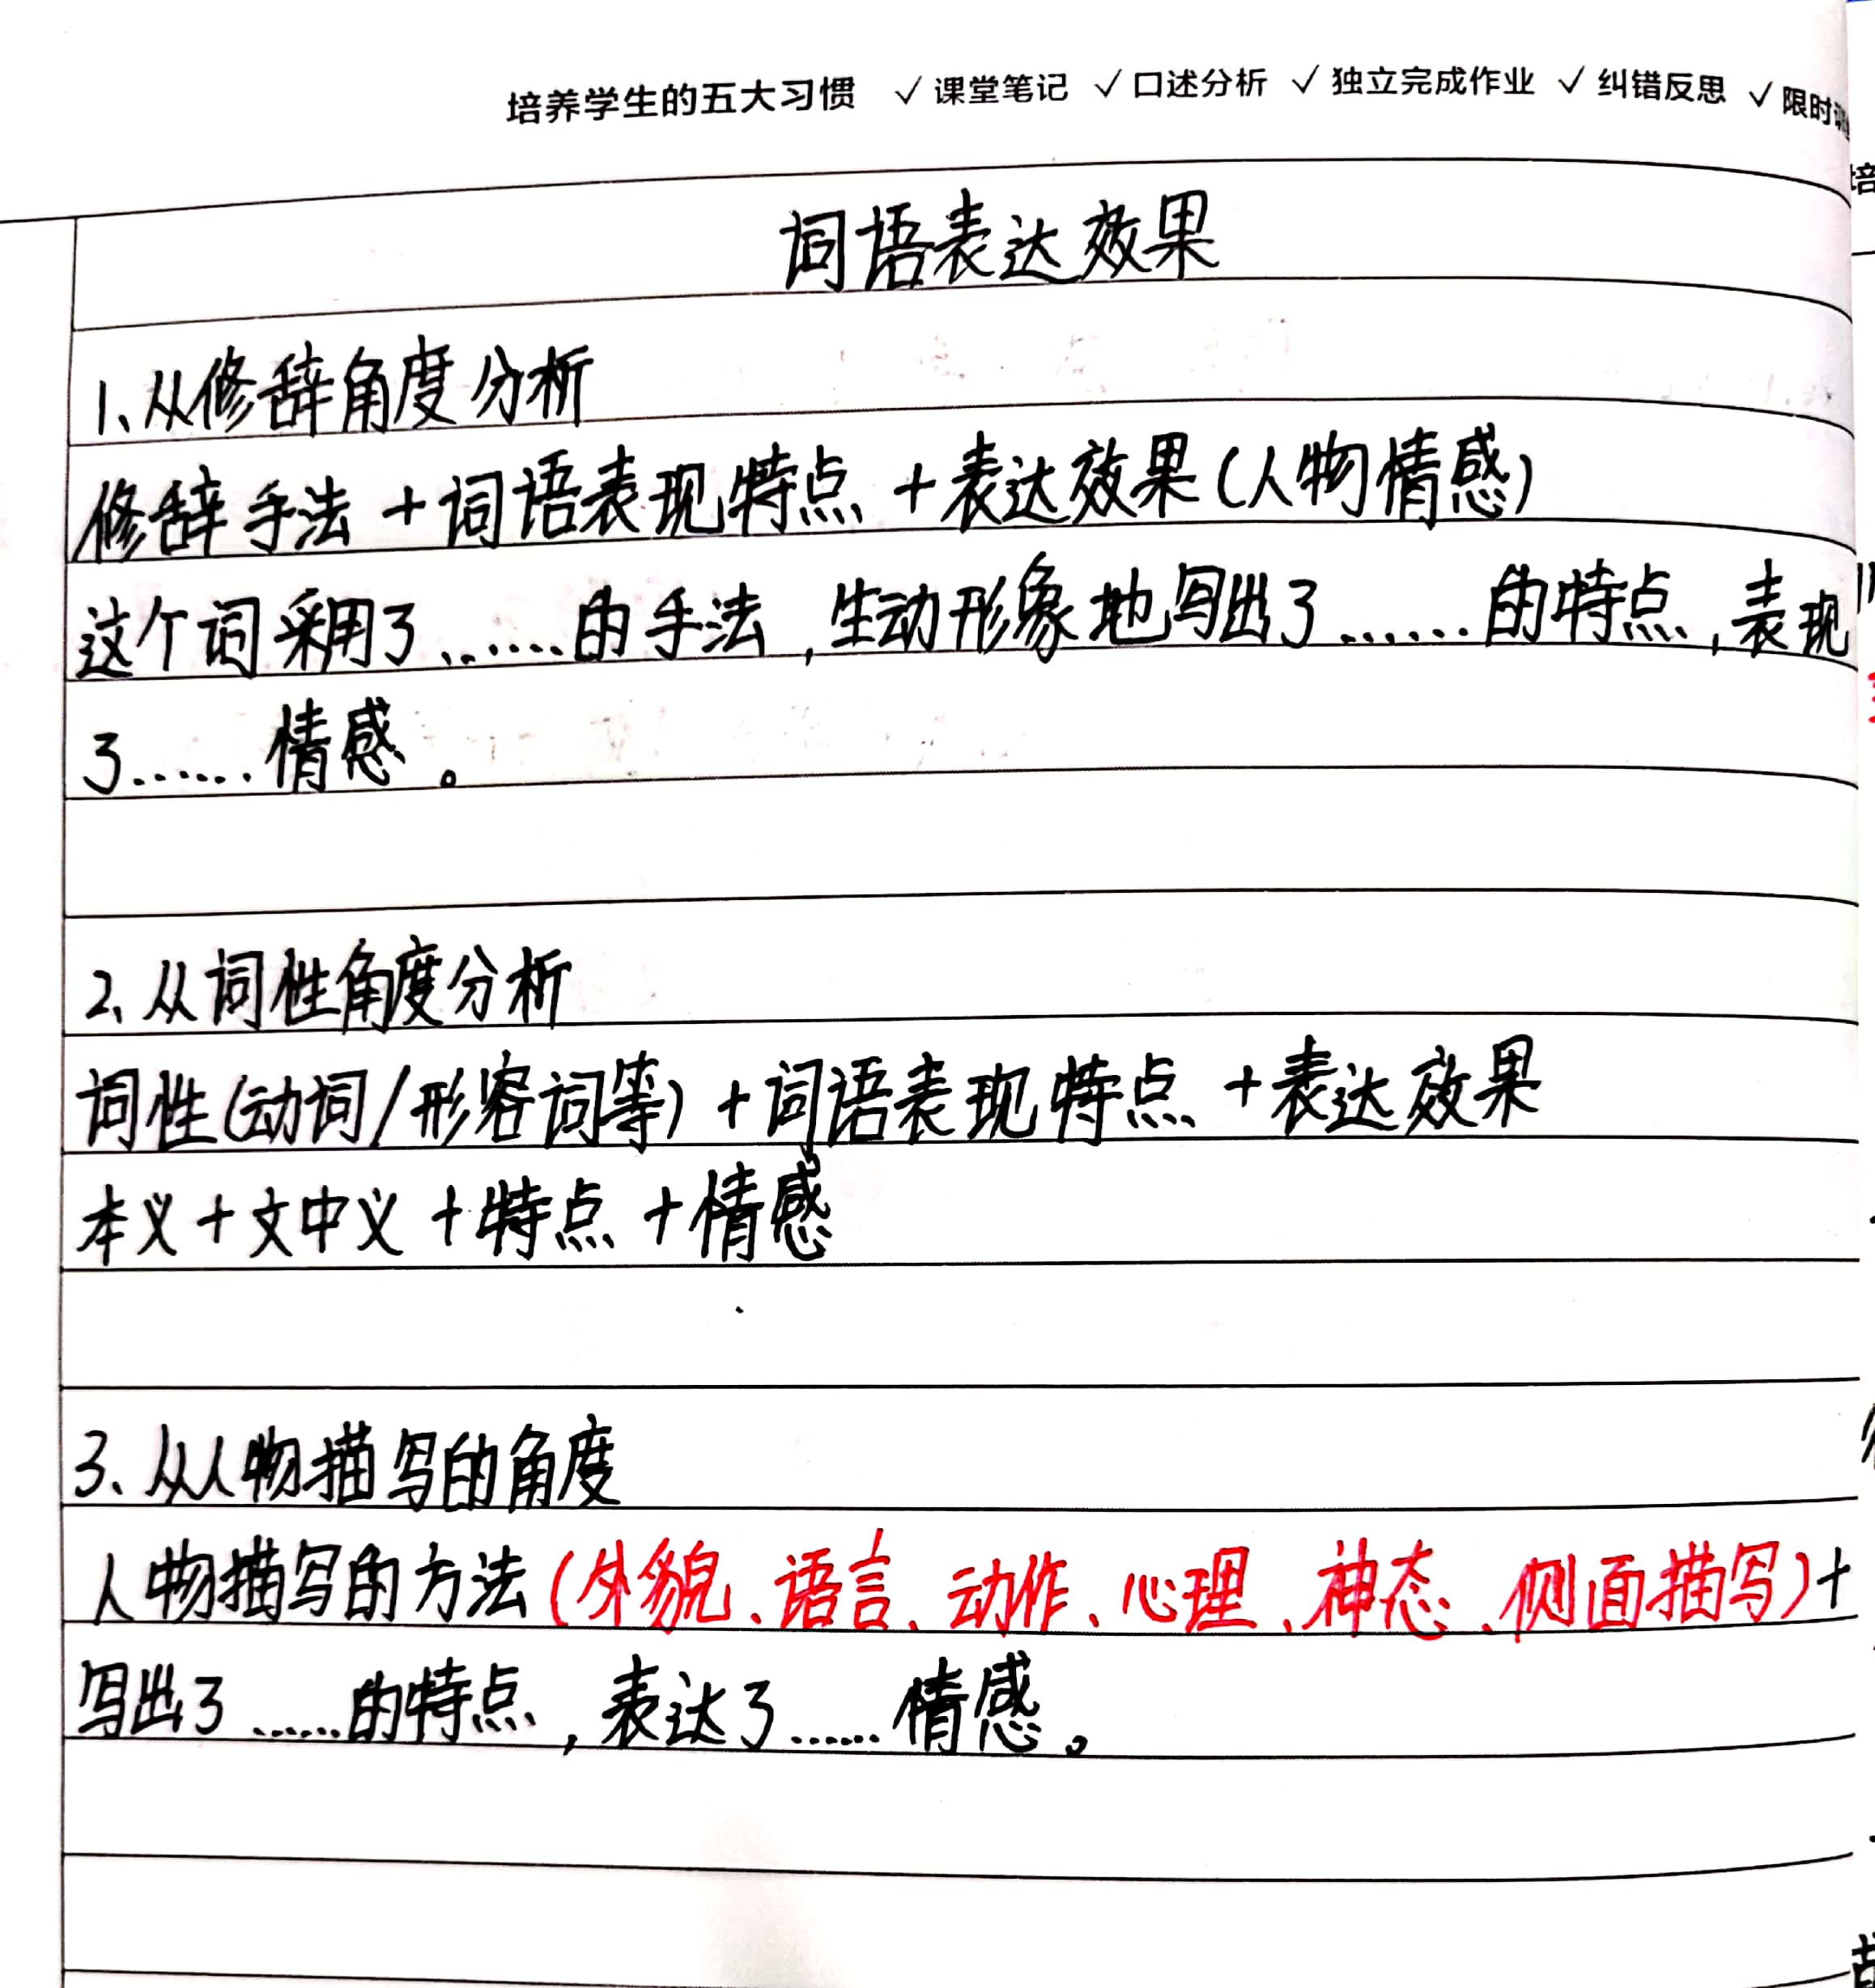 培养学生的五大习惯 ✓课堂笔记 ✓口述分析 ✓独立完成作业 ✓纠错反思 ✓限时
词语表达效果
1、从修辞角度分析
修辞手法+词语表现特点+表达效果(人物情感)
这个词采用了......的手法,生动形象地写出了......的特点,表现
了......情感。
2、从词性角度分析
词性(动词/形容词等)+词语表现特点+表达效果
本义+文中义+特点+情感
3、从人物描写的角度
人物描写的方法(外貌、语言、动作、心理、神态、侧面描写)+
写出了......的特点,表达了......情感。